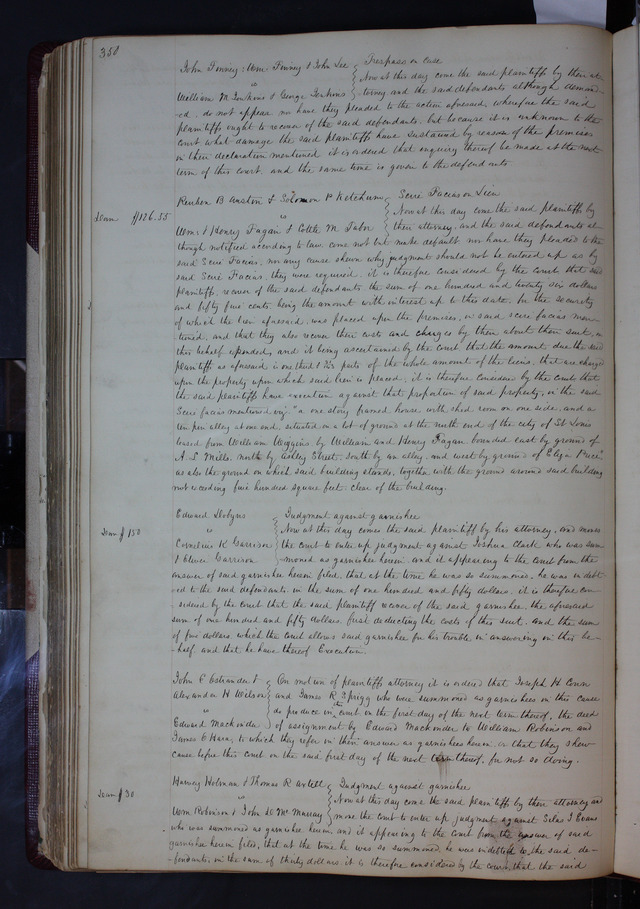 350
John Finney, Wm Finney & John Lee } Trespass on case
vs } Now at this day come the said plaintiffs by their at-
William M Jenkins & George Jenkins } torney and the said defendants although demand-
ed, do not appear nor have they pleaded to the action aforesaid, wherefore the said
plaintiffs ought to recover of the said defendants, but because it is unknown to the
court what damage the said plaintiffs have sustained by reason of the premises
in their declaration mentioned it is ordered that enquiry thereof be made at the next
term of this court, and the same time is given to the defendants
Reuben B Austin & Solomon P Ketchum } Scire Facias on Lien
Sum $126.55 vs } Now at this day come the said plaintiffs by
Wm & Henry Fagan & M Tabor } their attorney, and the said defendants al-
though notified according to law come not but make default nor have they pleaded to the
said Scire Facias, nor any cause shewn why judgment should not be entered up as by
said Scire Facias, they were required, it is therefore considered by the Court that said
plaintiffs, recover of the said defendants the sum of one hundred and twenty six dollars
and fifty five cents being the amount with interest up to this date, for the security
of which the lien aforesaid was placed upon the premises, in said scire facias men-
tioned, and that they also recover their costs and charges by them about their suit, in
this behalf expended, and it being ascertained by the court that the amount due the said
plaintiffs as aforesaid is one third parts of the whole amount of the liens, that are charged
upon the property upon which said lien is placed, it is therefore considered by the courts that
the said plaintiffs have execution against that proportion of said property, in the said
Scire facias mentioned viz "a one story framed house with shed room on one side, and a
ten pin alley at one end, situated on a lot of ground at the north end of the city of St Louis
leased from William Wiggins by William and Henry Fagan bounded east by ground of
A S Mills, north by Ashley Street, south by an alley, and west by ground of
as also the ground on which said building stands, together with the ground around said building
not exceeding five hundred square feet clear of the building
Edward Dobyns } Judgment against garnishee
Sum $150 vs } Now at this day comes the said plaintiff by his attorney, and moves
Cornelius K Garrison } the court to enter up judgment against Joshua Clark who was sum
& Oliver Garrison } moned as garnishee herein and it appearing to the court from the
answer of said garnishee herein filed, that at the time he was so summoned, he was indebt
ed to the said defendants in the sum of one hundred and fifty dollars, it is therefore con
sidered by the court that the said plaintiff recover of the said garnishee, the aforesaid
sum of one hundred and fifty dollars, first deducting the costs of this suit, and the sum
of five dollars which the court allows said garnishee for his trouble in answering in this be-
half and that he have thereof Execution.
John P Ostrander & } On motion of plaintiffs attorney it is ordered that Joseph H Conn
Alexander H Wilson } and James R Sprigg who were summoned as garnishees in this cause
vs } do produce in the court on the first day of the next term thereof, the deed
Edward Mackinder } of assignment by Edward Mackinder to William Robinson and
James O Hara, to which they refer in their answer as garnishees herein, or that they shew
cause before this court on the said first day of the next term thereof, for not so doing.
Harvey Holman & Thomas R Axtell } Judgment against garnishee
Sum $30 vs } Now at this day come the said plaintiffs by their attorney and
Wm Robinson & John D McMurray } move the court to enter up judgment against Silas J Evans
who was summoned as garnishee herein, and it appearing to the court from the answer of said
garnishee herein filed, that at the time he was so summoned, he was indebted to the said de-
fendants, in the sum of thirty dollars, it is therefore considered by the court, that the said